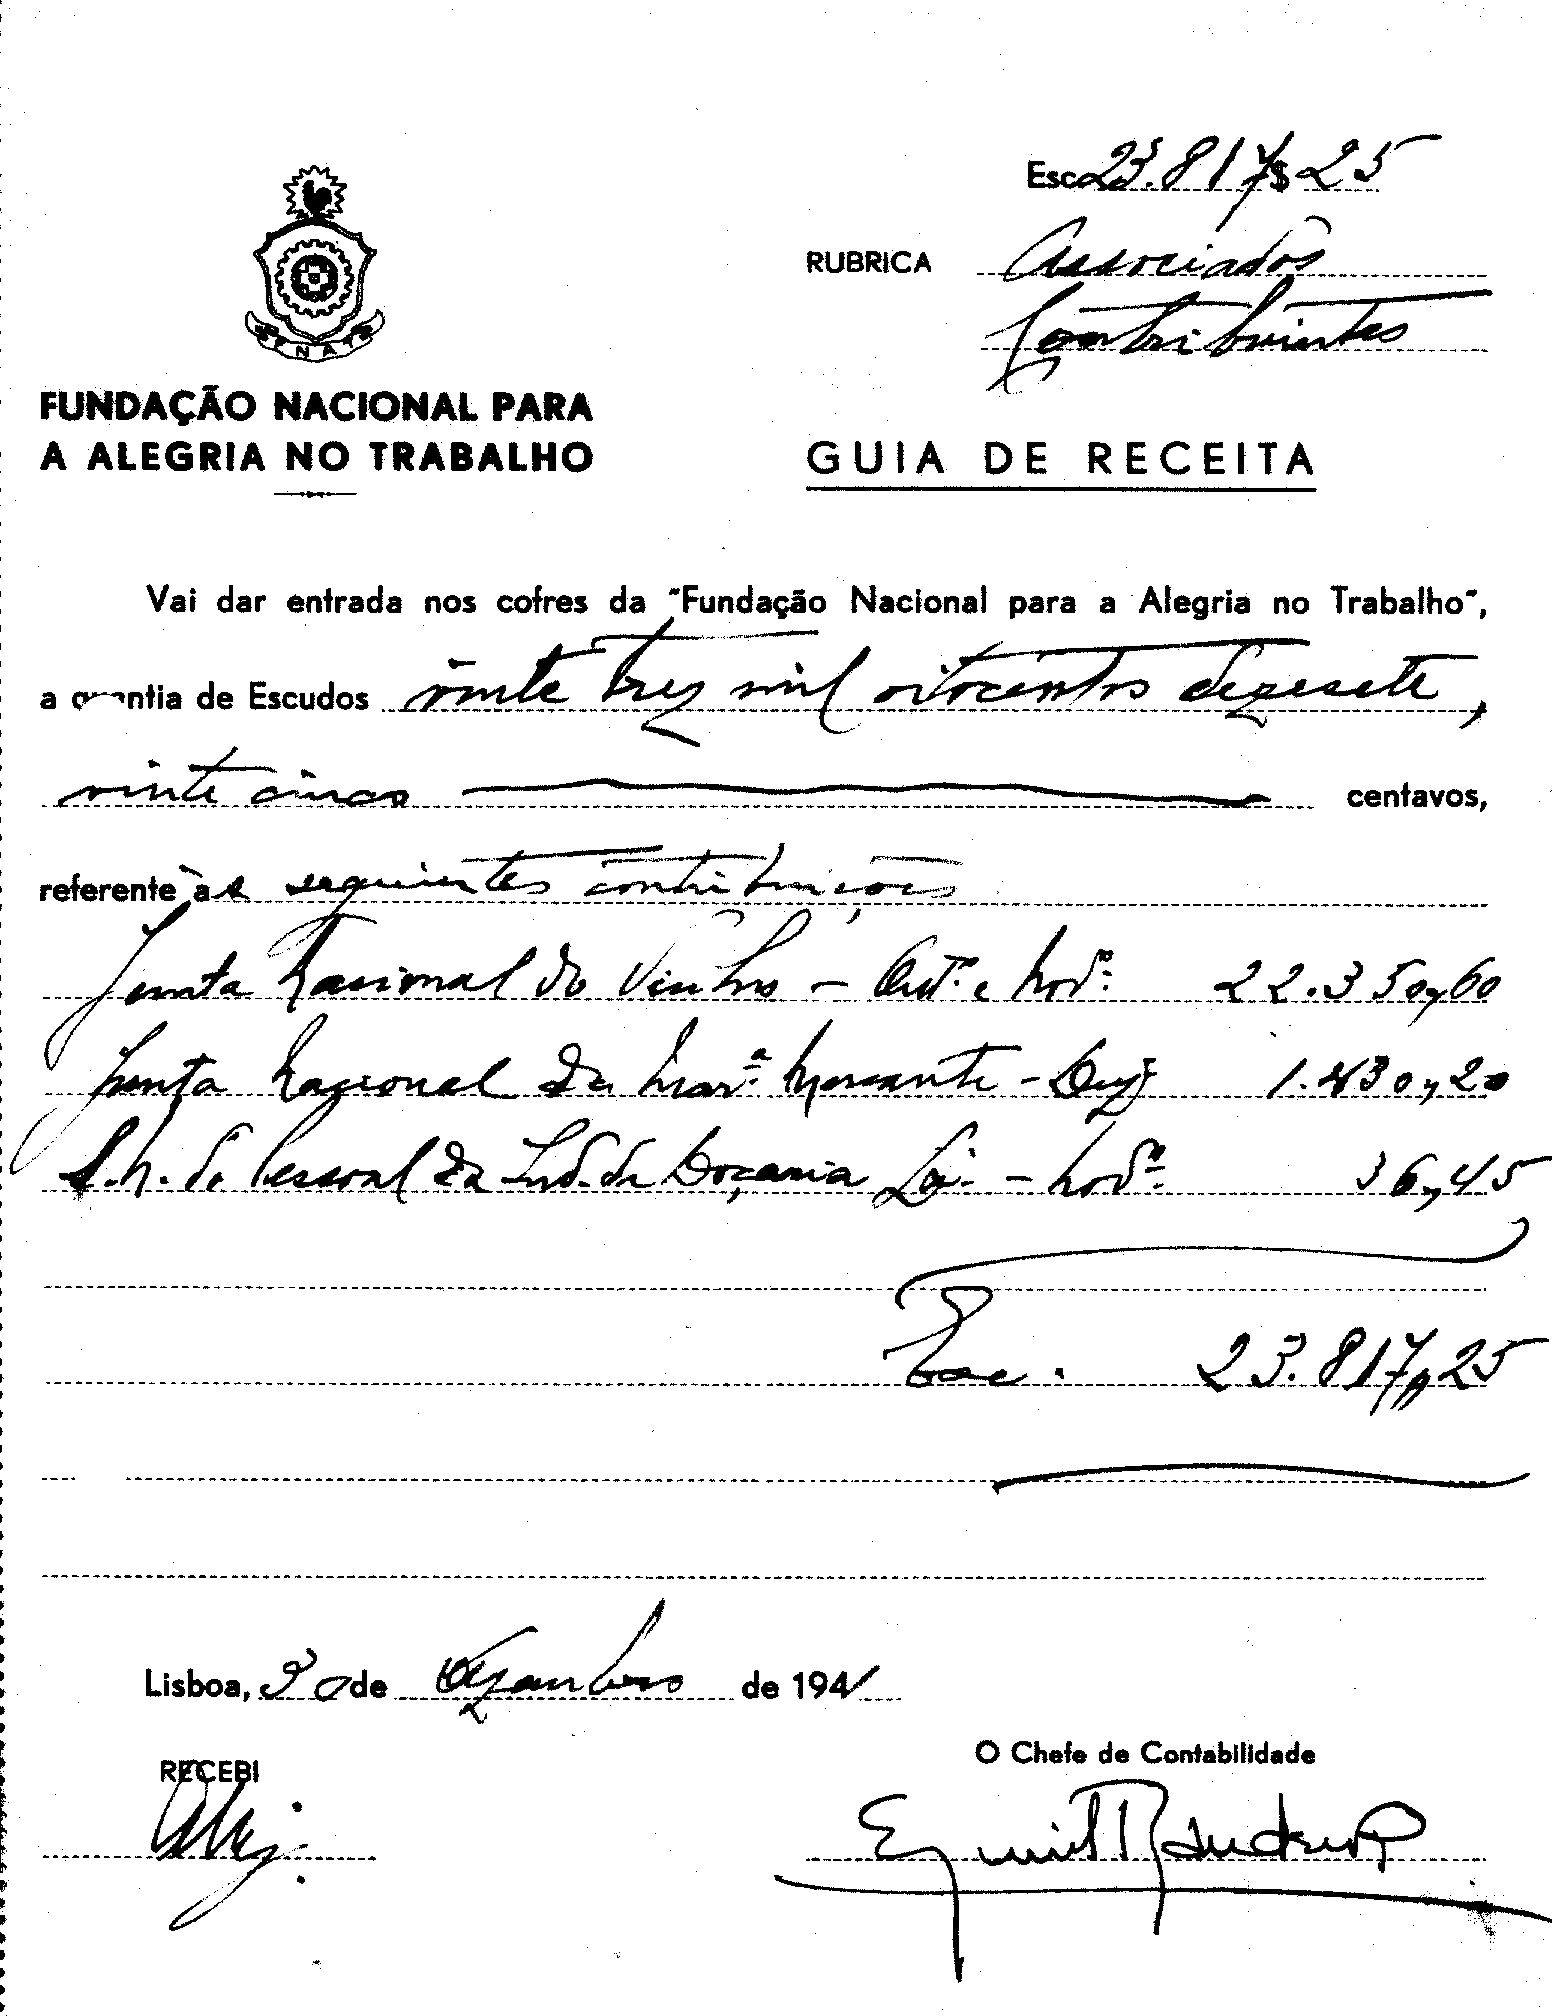 Esc. 23.817$25
RUBRICA Associados
Contribuintes
FNAT
FUNDAÇÃO NACIONAL PARA
A ALEGRIA NO TRABALHO
GUIA DE RECEITA
Vai dar entrada nos cofres da "Fundação Nacional para a Alegria no Trabalho",
a quantia de Escudos vinte trez mil oitocentos dezesete,
vinte cinco centavos,
referente às seguintes contribuições
Junta Nacional do Vinho - Out.º e Nov.º 22.350,60
Junta Nacional da Mar.ª Mercante - Dez 1.430,20
S. N. do Pessoal da Ind. da Doçaria - Nov.º 36,45
Esc. 23.817,25
Lisboa, 30 de Dezembro de 1941
RECEBI
O Chefe de Contabilidade